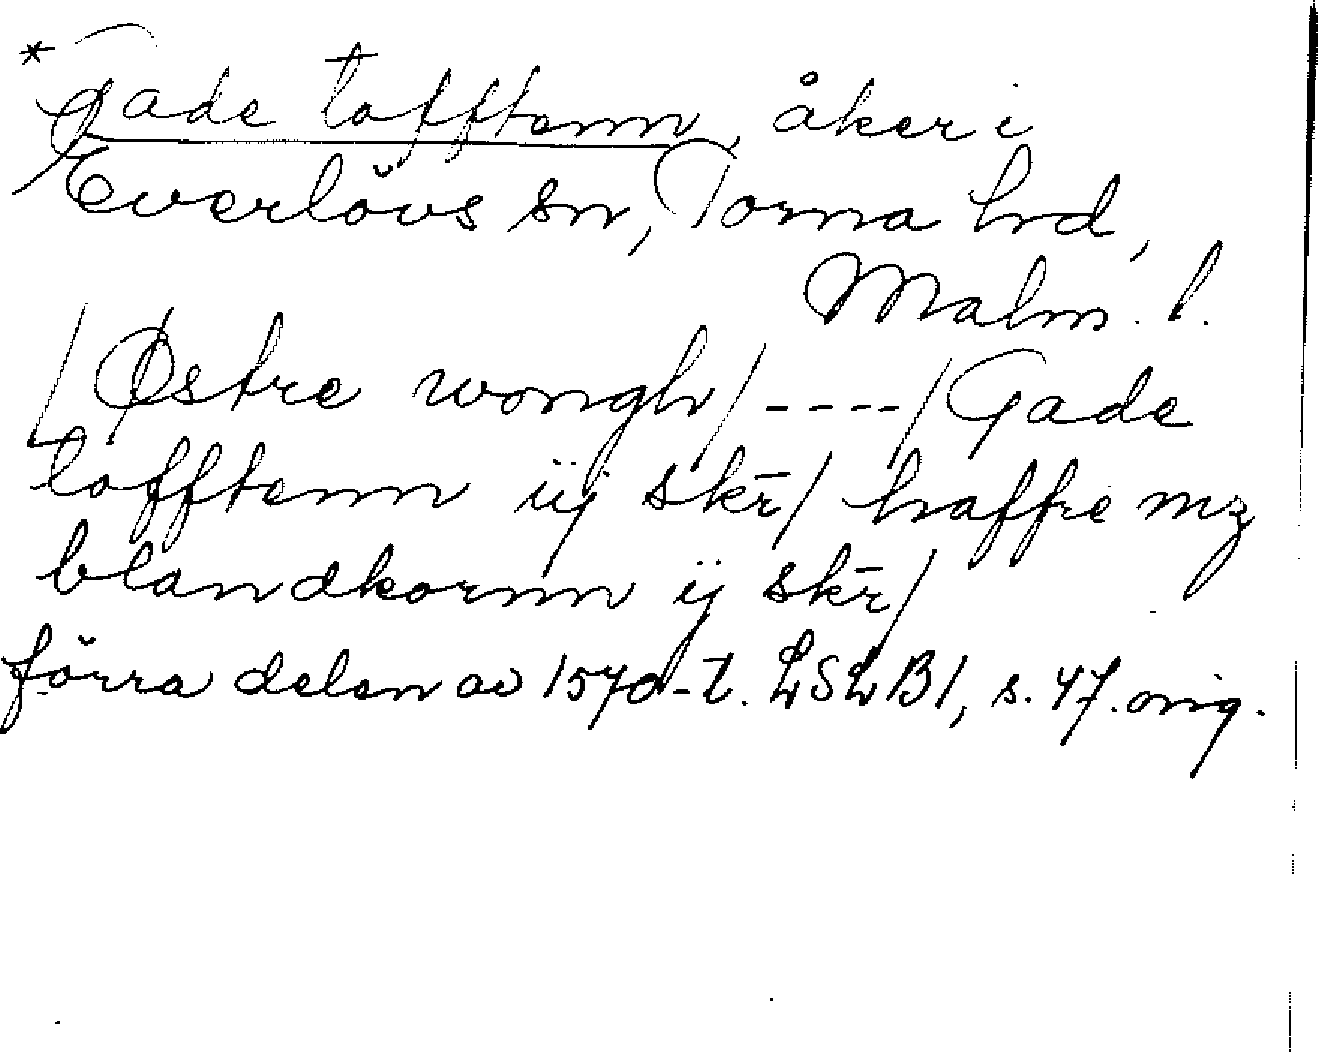 * Gade tofftenn, åker i
Everlövs sn, Torna hd,
Malm. l.
/ Østre wongh / ---- / Gade
tofftenn iij skr̄ / haffre mz
blandkornn ij skr̄ /
förra delen av 1570-t. LSLB1, s. 47. orig.